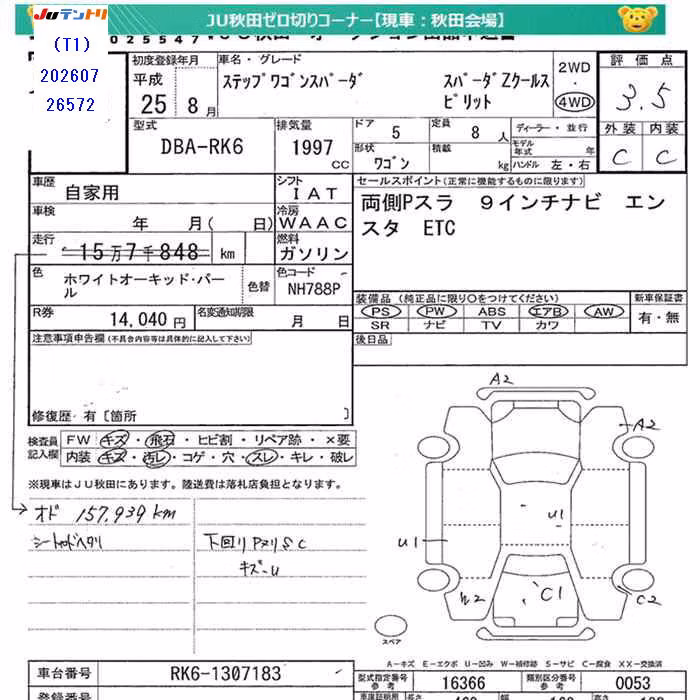 JU秋田ゼロ切りコーナー【現車：秋田会場】
Juテントリ
(T1)
202607
26572
025547
初度登録年月
平成
25 8月
車名・グレード
ステップワゴンスパーダ スパーダZクールス
ピリット
2WD
・
4WD
評価点
3.5
型式
DBA-RK6
排気量
1997
CC
ドア 5
定員 8人
形状 ワゴン
積載 kg
ディーラー・並行
モデル年式 年
ハンドル 左・右
外装 内装
C C
車歴 自家用
シフト IAT
車検 年 月( 日)
冷房 WAAC
走行 15万7千848 km
燃料 ガソリン
色 ホワイトオーキッド・パール
色替
色コード NH788P
R券 14,040円
名変通知期限 月 日
セールスポイント(正常に機能するものに限ります)
両側Pスラ 9インチナビ エン
スタ ETC
装備品(純正品に限り○をつけてください)
PS PW ABS エアB AW
SR ナビ TV カワ
新車保証書
有・無
後日品
注意事項申告欄(不具合内容等は具体的に記入して下さい)
修復歴・有〔箇所 〕
検査員
記入欄
FW キズ・飛石・ヒビ割・リペア跡・×要
内装 キズ・汚レ・コゲ・穴・スレ・キレ・破レ
※現車はJU秋田にあります。陸送費は落札店負担となります。
オド 157,939km
シートヘタリ
下回りPヌリSC
キズ-U
A2
A2
U1
U1
C1
W2
C2
スペア
A-キズ E-エクボ U-凹み W-補修跡 S-サビ C-腐食 XX-交換済
車台番号 RK6-1307183
型式指定番号
参考
16366
類別区分番号
参考
0053
登録番号